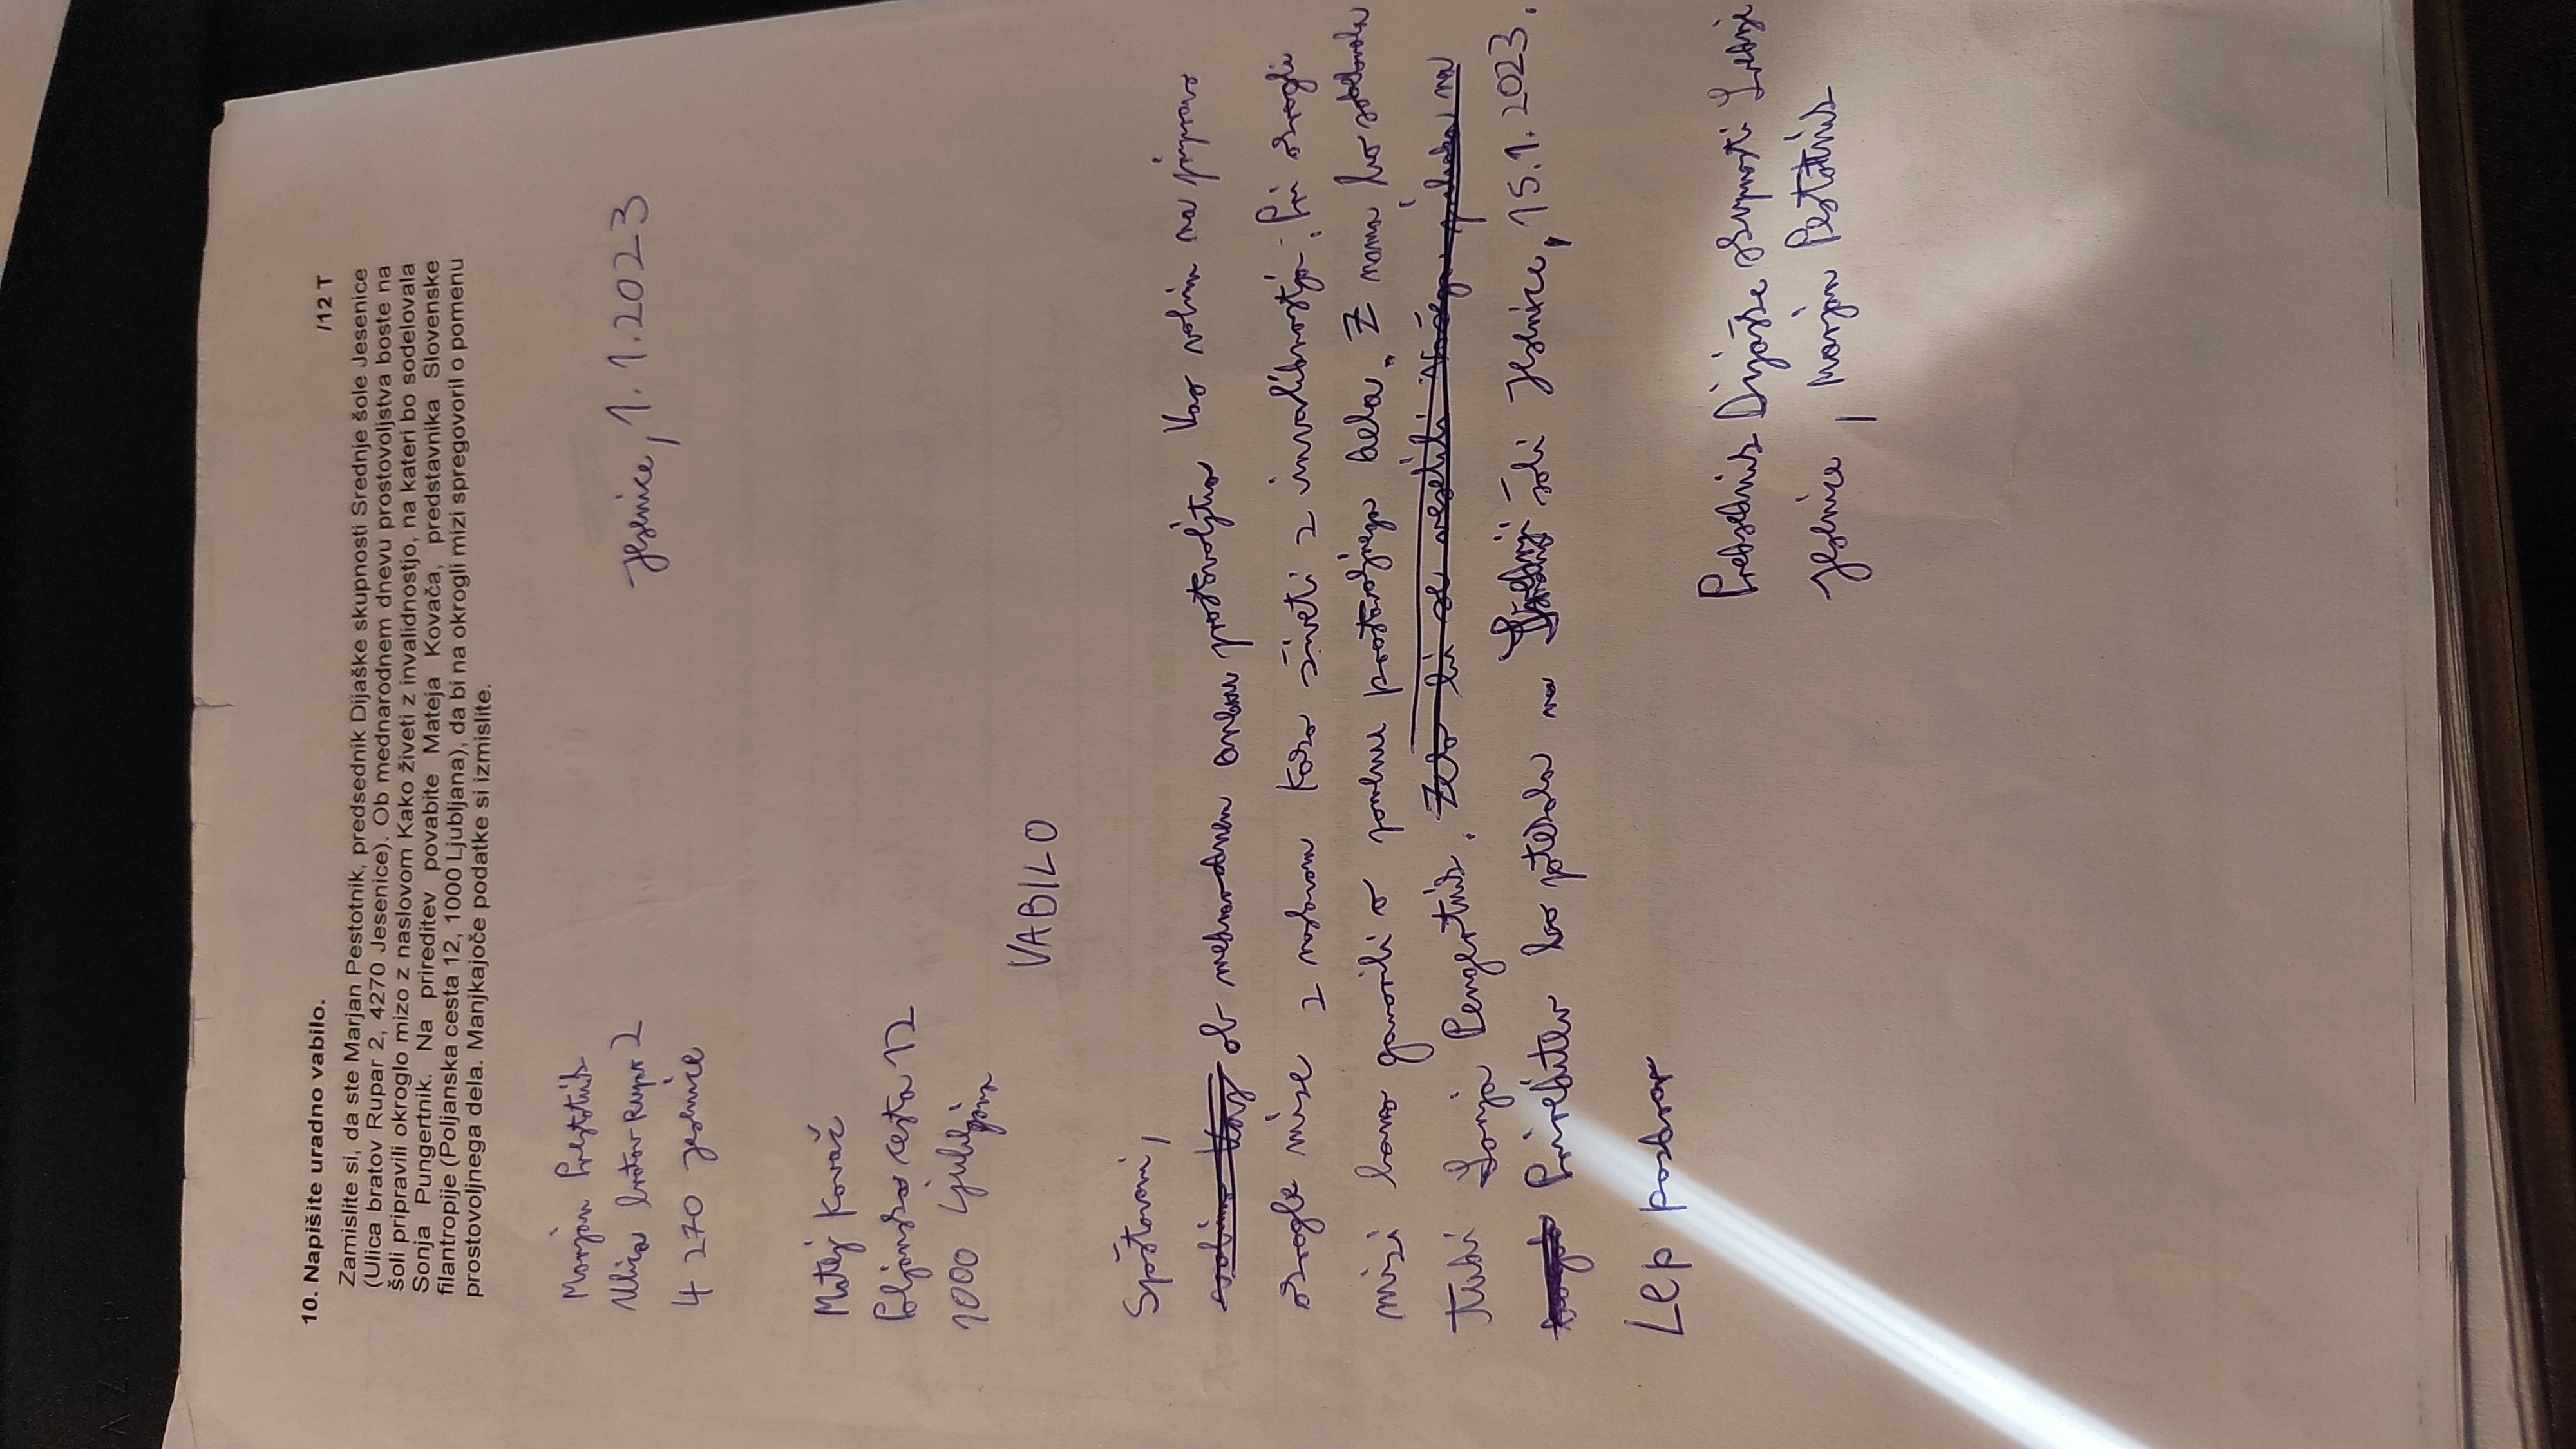 10. Napišite uradno vabilo.
/12 T
Zamislite si, da ste Marjan Pestotnik, predsednik Dijaške skupnosti Srednje šole Jesenice
(Ulica bratov Rupar 2, 4270 Jesenice). Ob mednarodnem dnevu prostovoljstva boste na
šoli pripravili okroglo mizo z naslovom Kako živeti z invalidnostjo, na kateri bo sodelovala
Sonja Pungertnik. Na prireditev povabite Mateja Kovača, predstavnika Slovenske
filantropije (Poljanska cesta 12, 1000 Ljubljana), da bi na okrogli mizi spregovoril o pomenu
prostovoljnega dela. Manjkajoče podatke si izmislite.
Marjan Prestotnik
Ulica bratov Rupar 2
4270 Jesenice
Jesenice, 1.1.2023
Matej Kovač
Poljanska cesta 12
1000 Ljubljana
VABILO
Spštovani,
vabimo Vas ob mednarodnem dnevu prostovoljtva Vas vabim na pripravo
okrogle mize z naslovom Kako živeti z invalidnostjo. Pri okrogli
mizi bomo govorili o pomenu prostovoljnega dela. Z nama bo sodelovala
tudi Sonja Pengertnik. Zelo bi se veselili Vašega prihoda na
Prireditev bo potekala na Srednji šoli Jesenice, 15.1.2023.
Lep pozdrav
Predsednik Dijaške skupnosti Srednje
Jesenice, Marjan Pestotnik